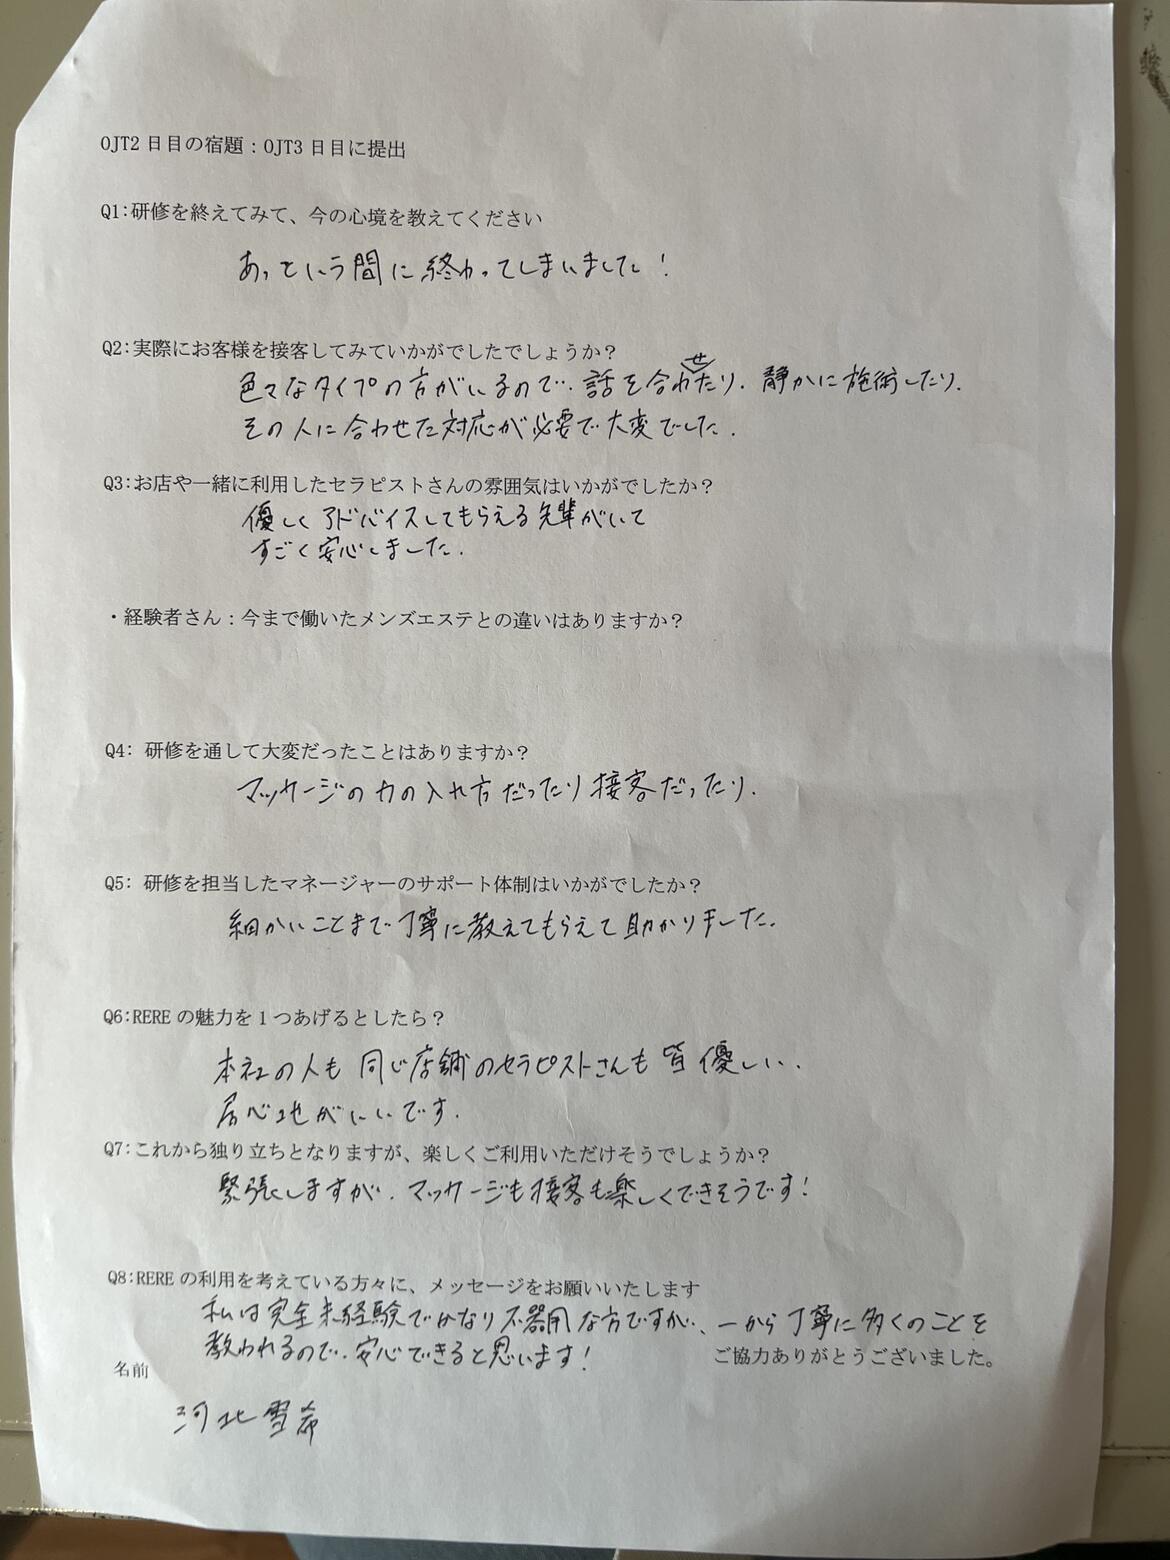 OJT2 日目の宿題：OJT3 日目に提出
Q1:研修を終えてみて、今の心境を教えてください
あっという間に終わってしまいました！
Q2:実際にお客様を接客してみていかがでしたでしょうか？
色々なタイプの方がいるので、話を合わせたり、静かに施術したり、
その人に合わせた対応が必要で大変でした。
Q3:お店や一緒に利用したセラピストさんの雰囲気はいかがでしたか？
優しくアドバイスしてもらえる先輩がいて
すごく安心しました。
・経験者さん：今まで働いたメンズエステとの違いはありますか？
Q4: 研修を通して大変だったことはありますか？
マッサージの力の入れ方だったり接客だったり。
Q5: 研修を担当したマネージャーのサポート体制はいかがでしたか？
細かいことまで丁寧に教えてもらえて助かりました。
Q6:RERE の魅力を1つあげるとしたら？
本社の人も同じ店舗のセラピストさんも皆優しい、
居心地がいいです。
Q7:これから独り立ちとなりますが、楽しくご利用いただけそうでしょうか？
緊張しますが、マッサージも接客も楽しくできそうです！
Q8:RERE の利用を考えている方々に、メッセージをお願いいたします
私は完全未経験でかなり不器用な方ですが、一から丁寧に多くのことを
教われるので、安心できると思います！
ご協力ありがとうございました。
名前
河北雪希